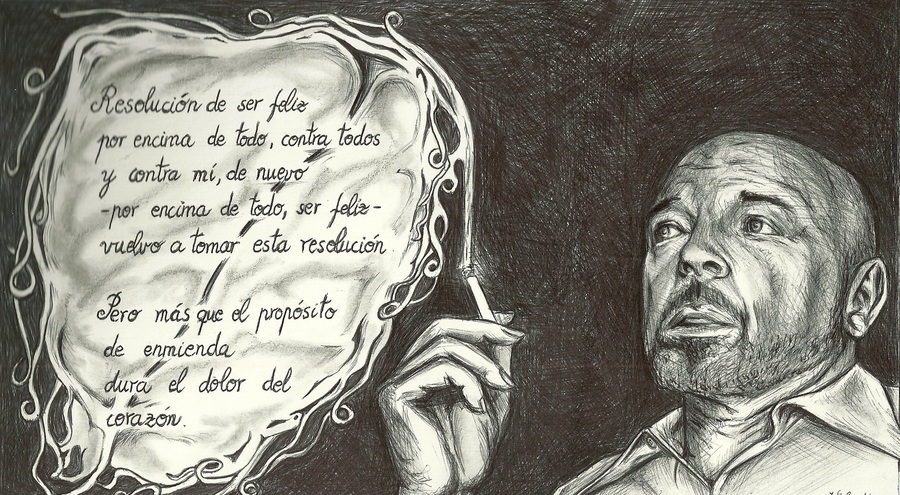 Resolución de ser feliz
por encima de todo, contra todos
y contra mí, de nuevo
-por encima de todo, ser feliz-
vuelvo a tomar esta resolución.
Pero más que el propósito
de enmienda
dura el dolor del
corazón.